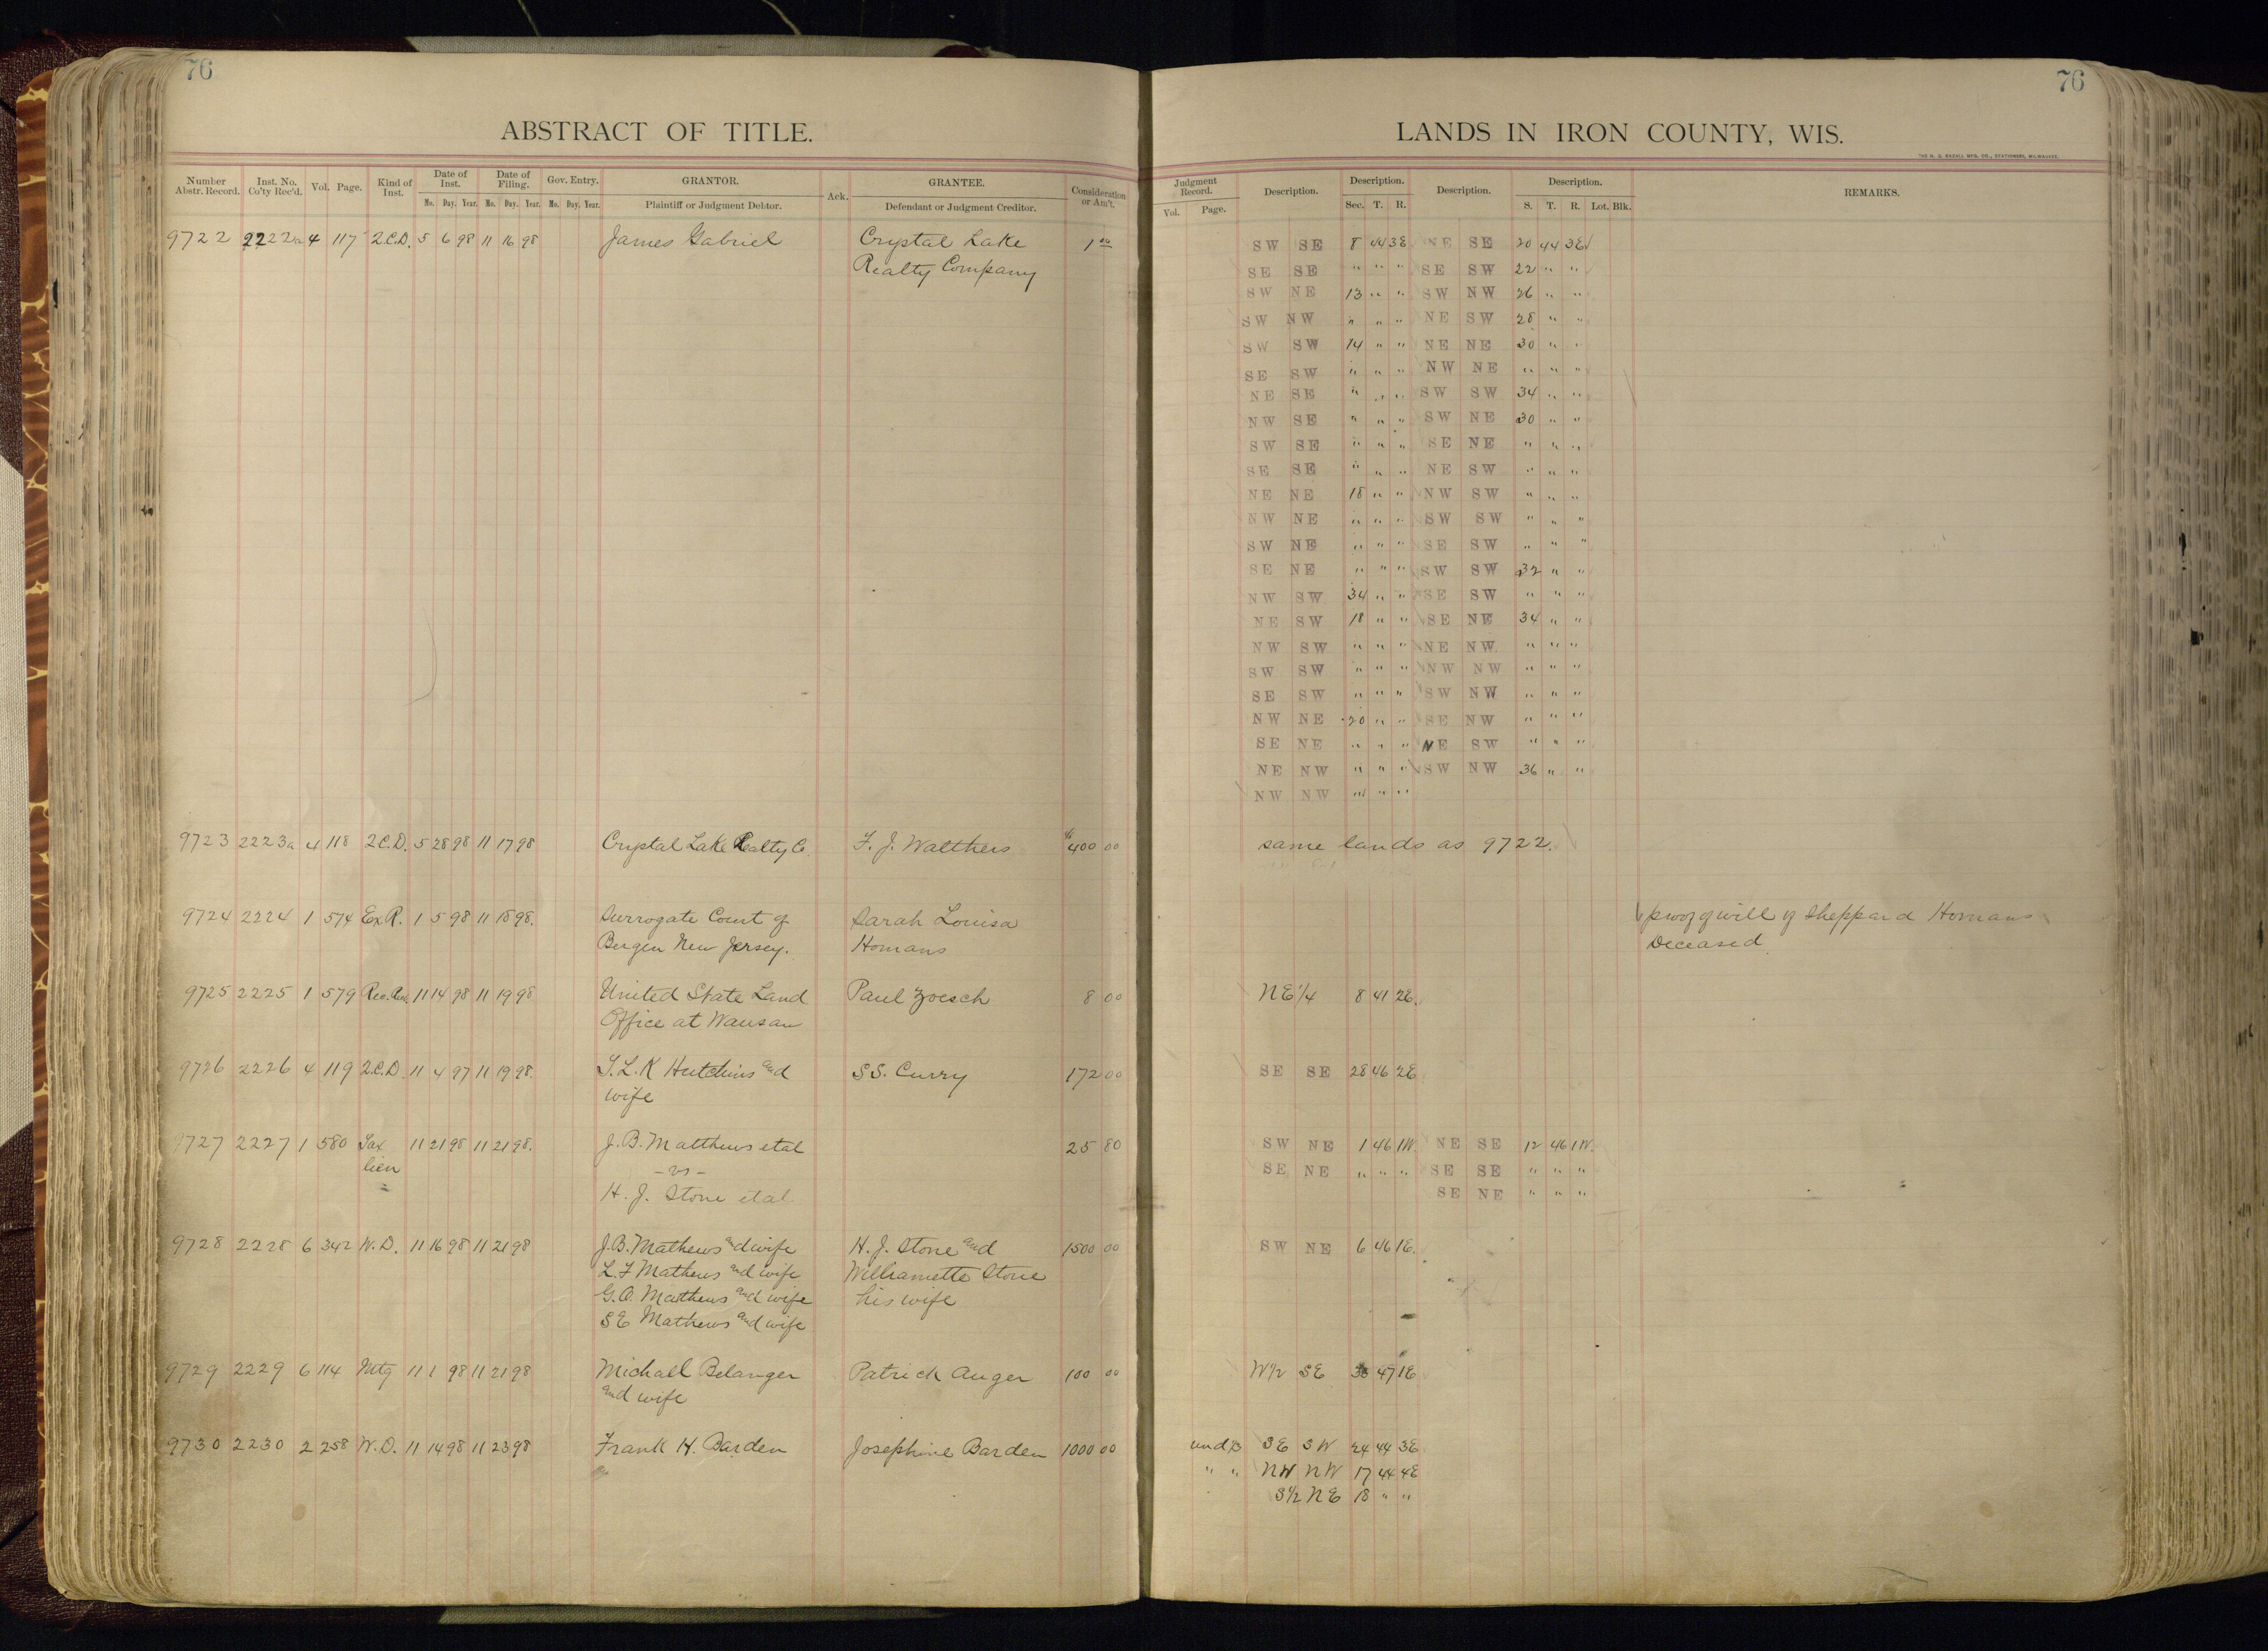 76
ABSTRACT OF TITLE.
Number Abstr. Record. Inst. No. Co'ty Rec'd. Vol. Page. Kind of Inst. Date of Inst. Date of Filing. Gov. Entry. GRANTOR. Ack. GRANTEE. Consideration or Am't.
Mo. Day. Year. Mo. Day. Year. Mo. Day. Year. Plaintiff or Judgment Debtor. Defendant or Judgment Creditor.
9722 2222a 4 117 2.C.D. 5 6 98 11 16 98 James Gabriel Crystal Lake 1 00
Realty Company
9723 2223a 4 118 2C.D. 5 28 98 11 17 98 Crystal Lake Realty Co. F. J. Walthers 400 00
9724 2224 1 574 Ex R. 1 5 98 11 18 98. Surrogate Court of Sarah Louisa
Bergen New Jersey. Homans
9725 2225 1 579 Rec. 11 14 98 11 19 98 United State Land Paul Zoesch 8 00
Office at Wausau
9726 2226 4 119 2.C.D. 11 4 97 11 19 98. S.L.K Hutchins and S S. Curry 172 00
wife
9727 2227 1 580 Tax 11 21 98 11 21 98. J. B. Matthews etal 25 80
lien - vs -
H. J. Stone etal
9728 2228 6 342 W.D. 11 16 98 11 21 98 J.B. Mathews and wife H. J. Stone and 1500 00
L. F Mathews and wife Williamette Stone
G. O. Matthews and wife his wife
S E Mathews and wife
9729 2229 6 114 Mtg 11 1 98 11 21 98 Michall Belanger Patrick Auger 100 00
and wife
9730 2230 2 258 W.D. 11 14 98 11 23 98 Frank H. Barden Josephine Barden 1000 00
76
LANDS IN IRON COUNTY, WIS.
THE H. G. RAZALL MFG. CO., STATIONERS, MILWAUKEE.
Judgment Record. Description. Description. Description. Description. REMARKS.
Vol. Page. Sec. T. R. S. T. R. Lot. Blk.
SW SE 8 44 3E NE SE 20 44 3E
SE SE " " " SE SW 22 " "
SW NE 13 " " SW NW 26 " "
SW NW " " " NE SW 28 " "
SW SW 14 " " NE NE 30 " "
SE SW " " " NW NE " " "
NE SE " " " SW SW 34 " "
NW SE " " " SW NE 30 " "
SW SE " " " SE NE " " "
SE SE " " " NE SW " " "
NE NE 18 " " NW SW " " "
NW NE " " " SW SW " " "
SW NE " " " SE SW " " "
SE NE " " " SW SW 32 " "
NW SW 34 " " SE SW " " "
NE SW 18 " " SE NE 34 " "
NW SW " " " NE NW " " "
SW SW " " " NW NW " " "
SE SW " " " SW NW " " "
NW NE 20 " " SE NW " " "
SE NE " " " NE SW " " "
NE NW " " " SW NW 36 " "
NW NW " " "
same lands as 9722.
proof of will of Sheppard Homans
Deceased
NE 1/4 8 41 2E.
SE SE 28 46 2E
SW NE 1 46 1W. NE SE 12 46 1W.
SE NE " " " SE SE " " "
SE NE " " "
SW NE 6 46 1E.
W 1/2 SE 47 1E
und 1/3 SE SW 24 44 3E
" " NW NW 17 44 4E
S 1/2 NE 18 " "